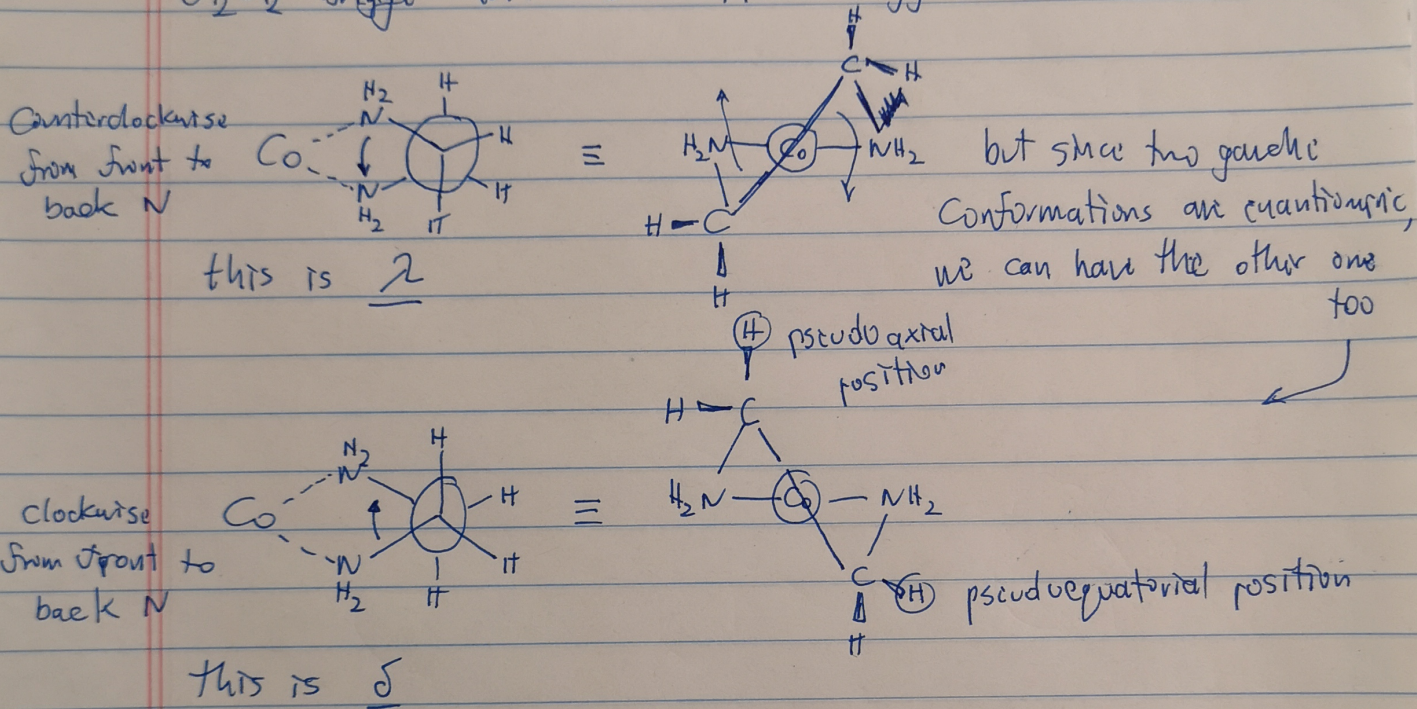 Counterclockwise
from front to
back N
Co
H2
N
N
H2
H
H
H
H
this is λ
≡
H
C H
H2N Co NH2
H C
H
but since two gauche
Conformations are enantiomeric,
we can have the other one
too
H pseudoaxial
position
H C
H2N Co NH2
C H pseudoequatorial position
H
Clockwise
from front to
back N
Co
H2
N
N
H2
H
H
H
H
≡
this is δ